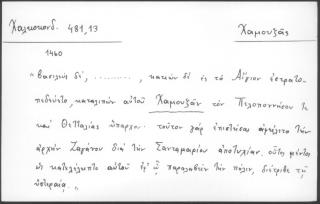 Χαλκοκονδ. 481,13 Χαμουζᾶς
1460
"βασιλεὺς δέ, ........., κακῶν δὲ ἐς τὸ Αἴγιον ἐστρατο-
πεδεύετο, καταλιπὼν αὐτοῦ Χαμουζᾶν τὸν Πελοποννήσου τε
καὶ Θετταλίας ὕπαρχον. τοῦτον γὰρ ἐπιστήσας ἀφείλετο τὴν
ἀρχὴν Ζαγάνου διὰ τὴν Σανταμαρίου ἀποτυχίαν. οὗτος μέντοι
ὡς κατελέλειπτο αὐτοῦ ἐφ' ᾧ παραλαβεῖν τὴν πόλιν, διέτριβε τῇ
ὑστεραίᾳ "